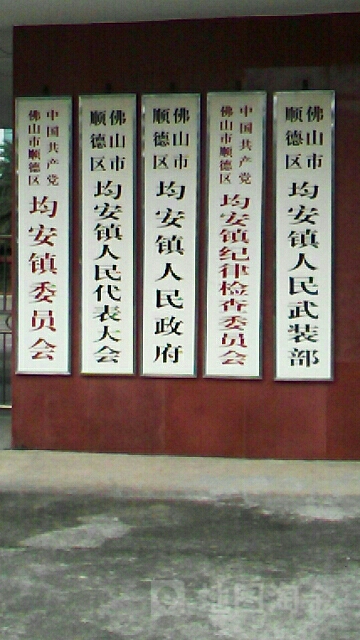 中国共产党
佛山市顺德区
均安镇委员会
佛山市
顺德区
均安镇人民代表大会
佛山市
顺德区
均安镇人民政府
中国共产党
佛山市顺德区
均安镇纪律检查委员会
佛山市
顺德区
均安镇人民武装部